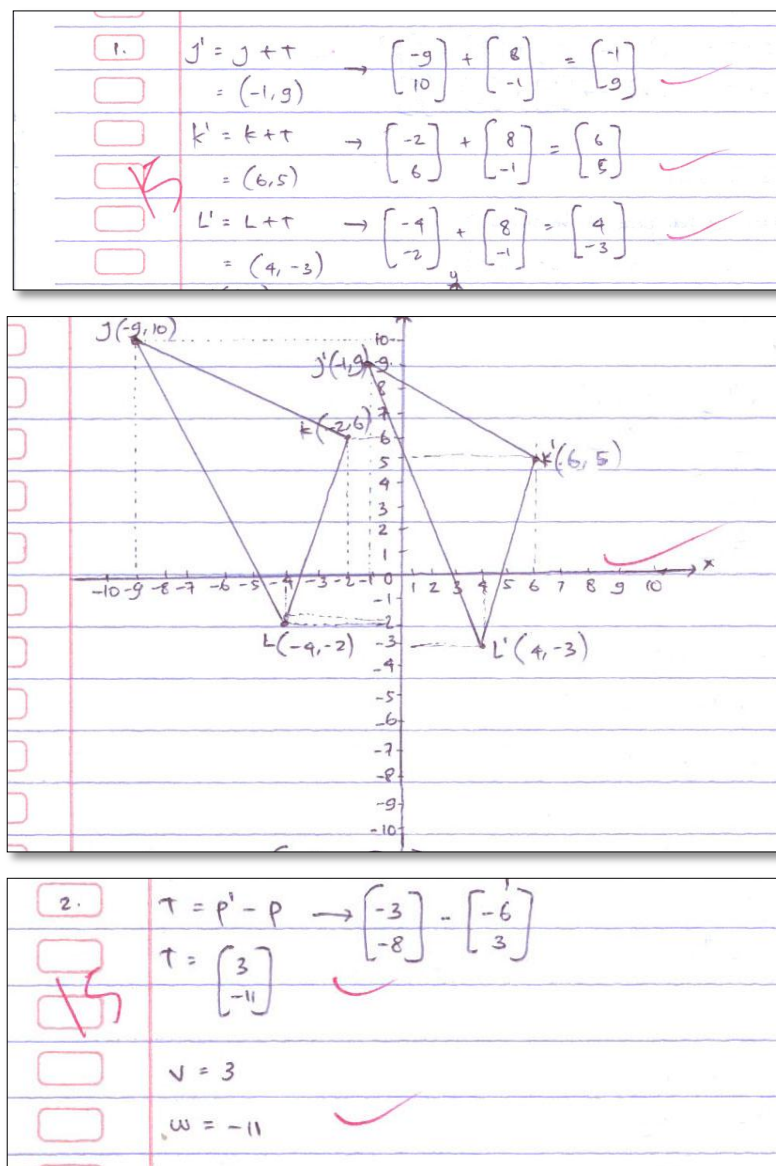 1. J' = J + T → [-9 10] + [8 -1] = [-1 9]
= (-1,9)
K' = K + T → [-2 6] + [8 -1] = [6 5]
= (6,5)
15
L' = L + T → [-4 -2] + [8 -1] = [4 -3]
= (4, -3)
y
J(-9,10)
10
J'(-1,9)
9
8
7
K(-2,6)
6
K'(6,5)
5
4
3
2
1
-10 -9 -8 -7 -6 -5 -4 -3 -2 -1 0 1 2 3 4 5 6 7 8 9 10 x
-1
-2
L(-4,-2)
-3
L'(4,-3)
-4
-5
-6
-7
-8
-9
-10
2. T = P' - P → [-3 -8] - [-6 3]
T = [3 -11]
15
V = 3
W = -11